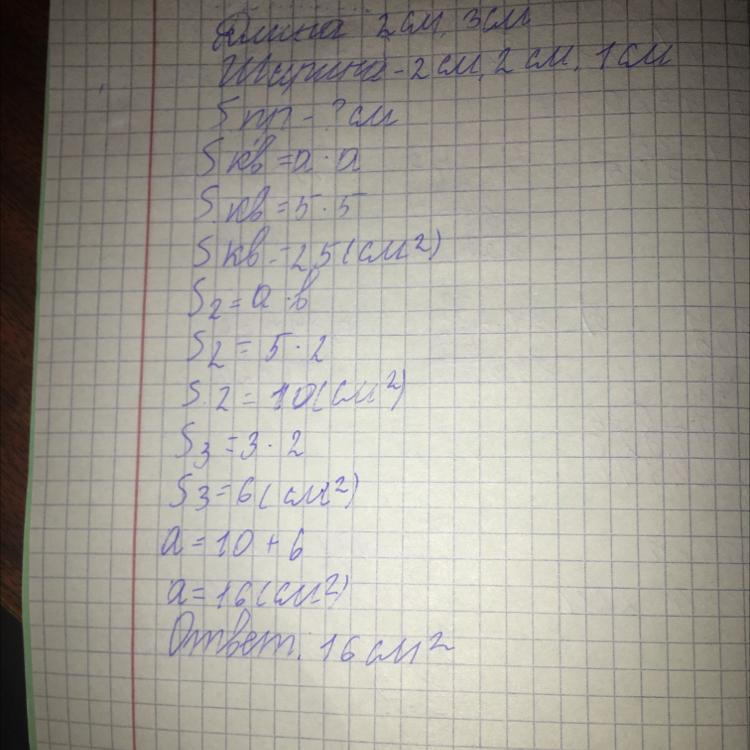 Длина 2см, 3см
Ширина - 2 см, 2 см, 1 см
Sпп - ? см
S кв = а · а
S кв = 5 · 5
S кв = 25 (см²)
S₂ = а · в
S₂ = 5 · 2
S.2 = 10 (см²)
S₃ = 3 · 2
S₃ = 6 (см²)
а = 10 + 6
а = 16 (см²)
Ответ. 16 см²